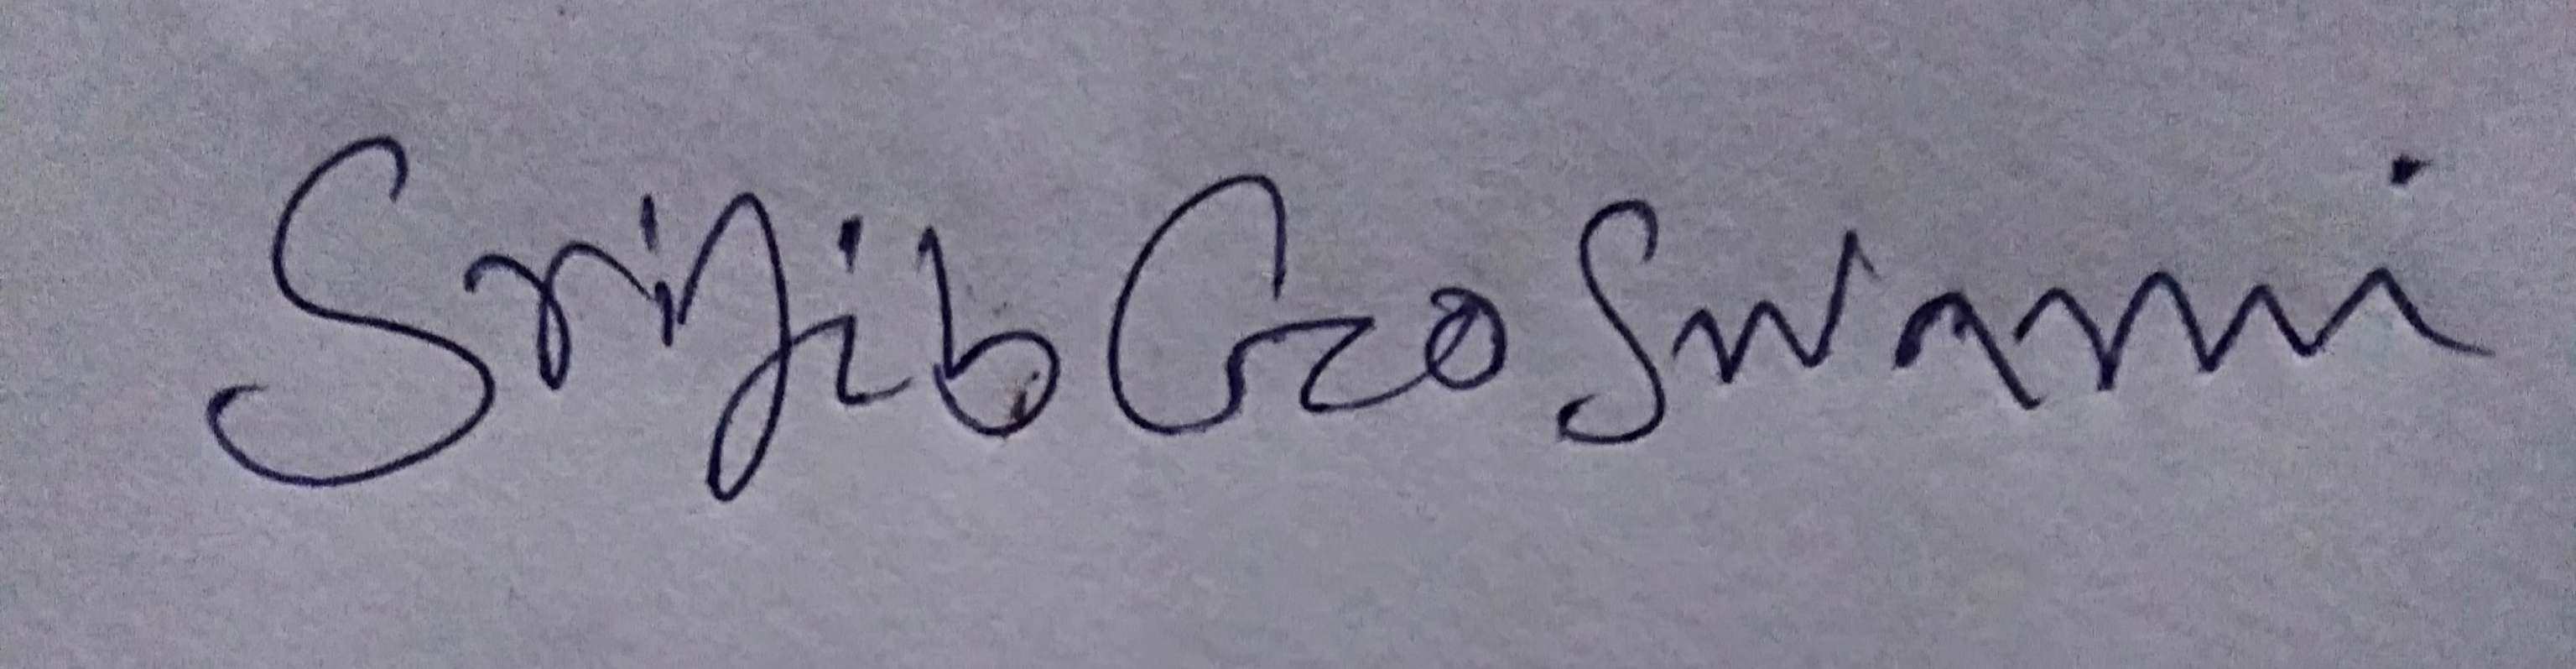 Srijib Goswami